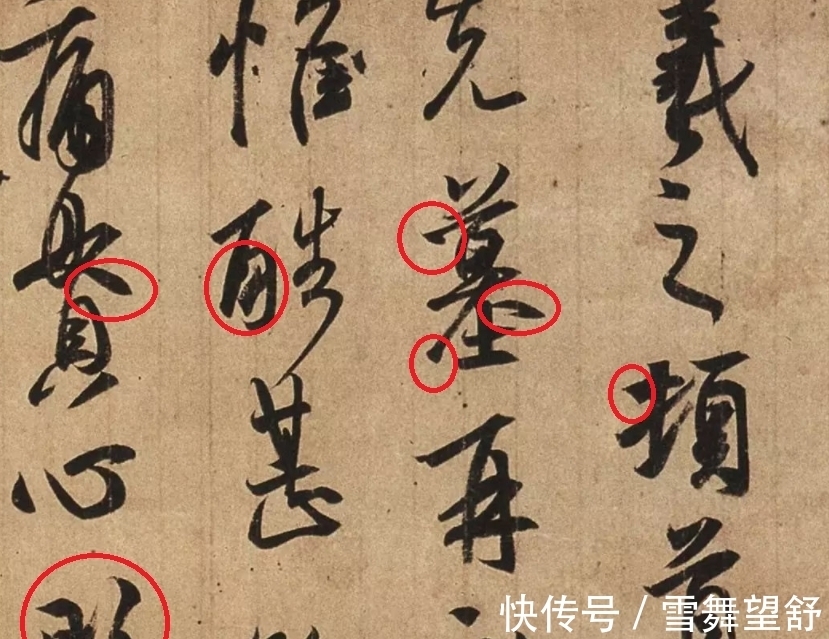 羲之頓首
先墓再
惟酷甚
痛貫心肝
快传号 / 雪舞望舒